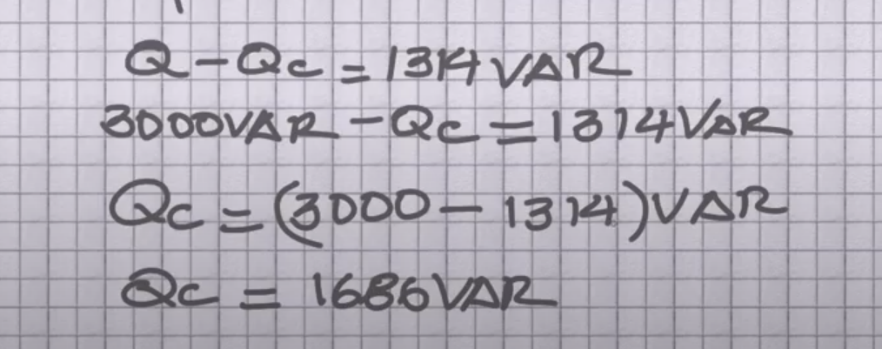 Q-Qc = 1314 VAR
3000VAR - Qc = 1314 VAR
Qc = (3000 - 1314) VAR
Qc = 1686 VAR